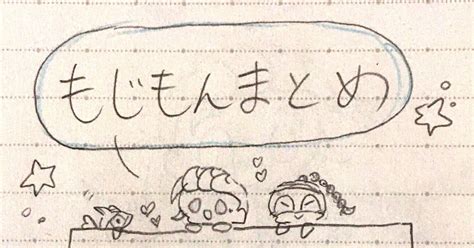 もじもんまとめ